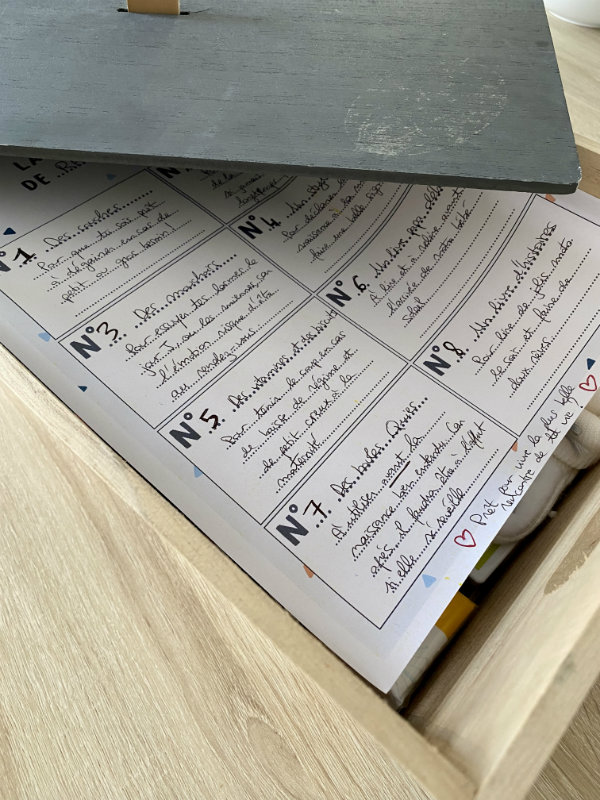 LA
DE
N°1 Des couches
Pour que tu sois prêt
à dégainer en cas de
petit ou gros besoin !
N°3 Des mouchoirs
Pour essuyer tes larmes le
jour J, ou les miennes, car
l'émotion risque d'être
au rendez-vous
N°4 Un stylo
Pour déclarer la
naissance à la
faire une belle
N°5 Des vitamines et des biscuits
Pour tenir le coup en cas
de baisse de régime et
de petit creux à la
maternité
N°6 Un livre pour
À lire et à relire avant
l'arrivée de notre bébé
soleil
N°7 Des boules Quies
À utiliser avant la
naissance bien entendu. Car
après il faudra être à l'affût
si elle se réveille
N°8 Un livre d'histoires
Pour lire de jolis mots
le soir et faire de
doux rêves
Prêt pour vivre la plus belle
rencontre de ta vie !